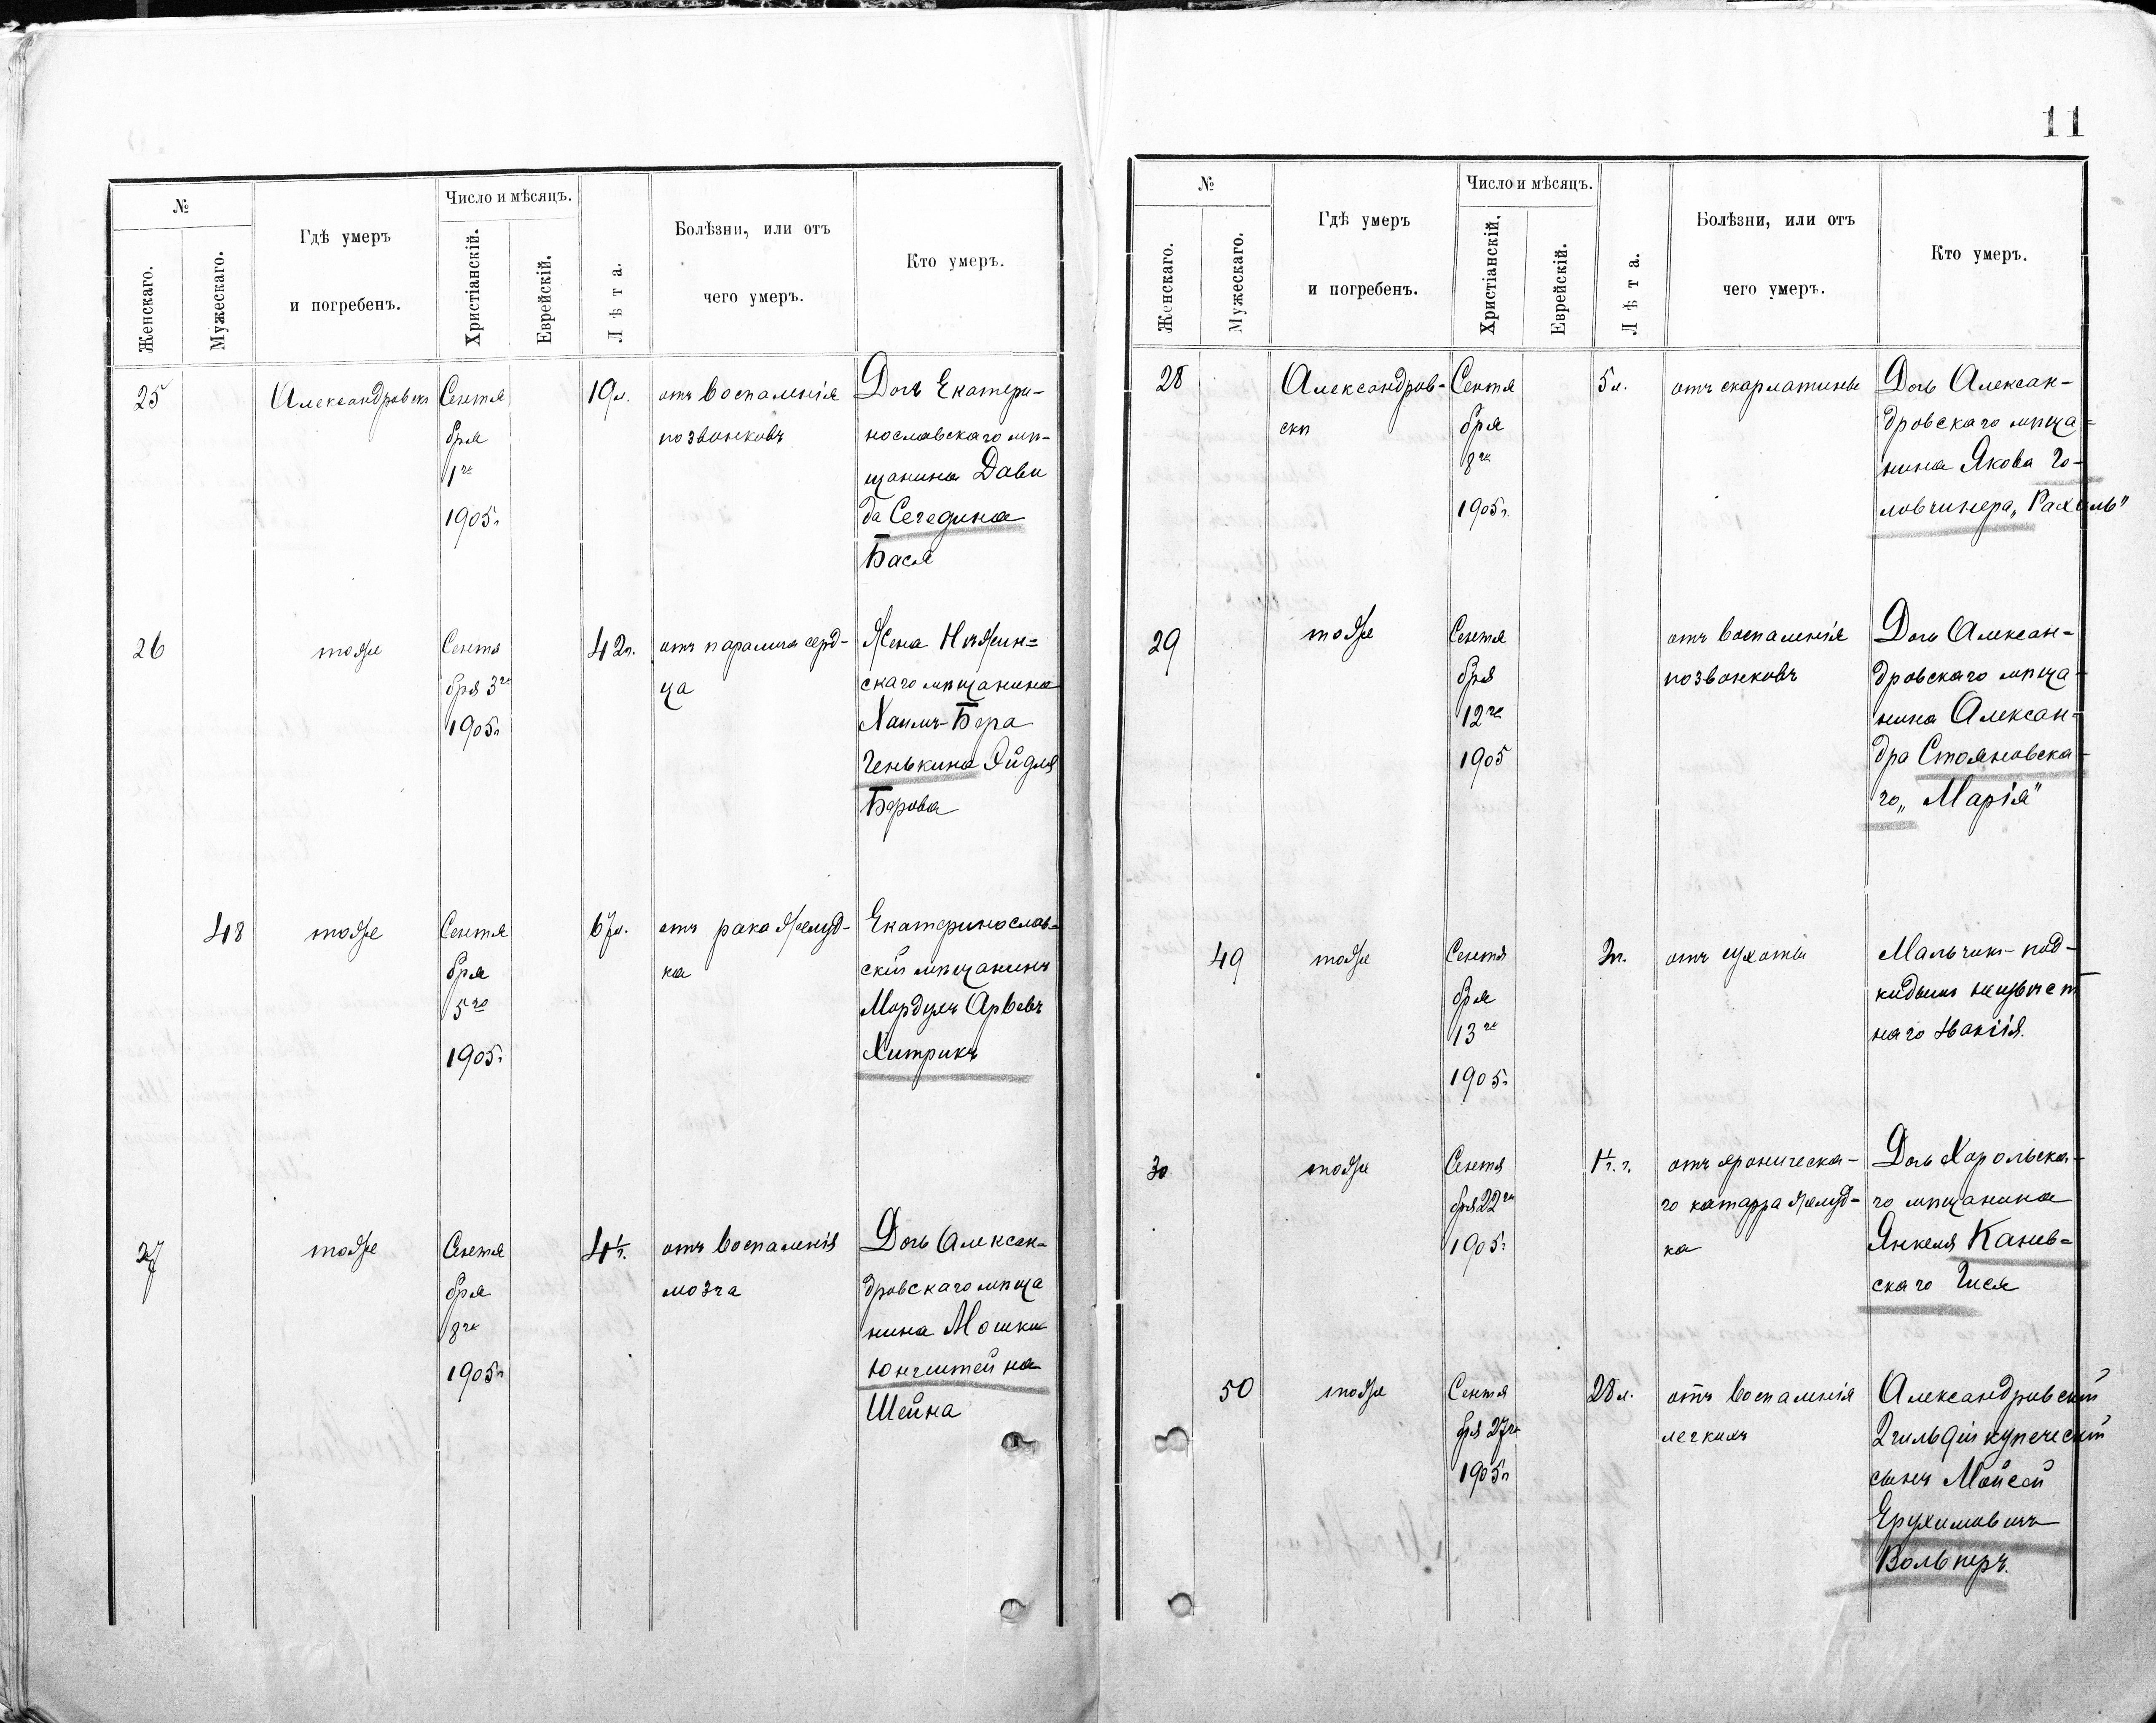 11
№
Число и мѣсяцъ.
Женскаго.
Мужескаго.
Гдѣ умеръ
и погребенъ.
Христіанскій.
Еврейскій.
Лѣта.
Болѣзни, или отъ
чего умеръ.
Кто умеръ.
25
Александровскѣ
Сентя
бря
1го
1905г.
19л.
отъ воспаленія
позвонковъ
Дочь Екатери-
нославскаго мѣ-
щанина Дави
да Сегедина
Бася
26
тоже
Сентя
бря 3го
1905г.
42г.
отъ паралича серд-
ца
Жена Нѣжин-
скаго мѣщанина
Хаимъ-Бера
Генькина Эйдля
Берова
48
тоже
Сентя
бря
5го
1905г.
67л.
отъ рака желуд-
ка
Екатеринослав-
скій мѣщанинъ
Мордухъ Арьевъ
Хитрикъ
27
тоже
Сентя
бря
8го
1905г.
4г.
отъ воспаленія
мозга
Дочь Алексан-
дровскаго мѣща
нина Мошки
Юнгштейна
Шейна
№
Число и мѣсяцъ.
Женскаго.
Мужескаго.
Гдѣ умеръ
и погребенъ.
Христіанскій.
Еврейскій.
Лѣта.
Болѣзни, или отъ
чего умеръ.
Кто умеръ.
28
Александров-
скѣ
Сентя
бря
8го
1905г.
5л.
отъ скарлатины
Дочь Алексан-
дровскаго мѣща-
нина Якова Го-
ловчинера „Рахиль"
29
тоже
Сентя
бря
12го
1905
отъ воспаленія
позвонковъ
Дочь Алексан-
дровскаго мѣща-
нина Алексан-
дра Стояновска-
го „Марія"
49
тоже
Сентя
бря
13го
1905г.
отъ сухоты
Мальчикъ-под-
кидышъ неизвѣст
наго званія.
30
тоже
Сентя
бря 22го
1905г.
отъ хроническа-
го катарра желуд-
ка
Дочь Хорольска-
го мѣщанина
Янкеля Канев-
скаго Гися
50
тоже
Сентя
бря 27го
1905г.
28л.
отъ воспаленія
легкихъ
Александровскій
2 гильдіи купеческій
сынъ Мойсей
Ерухимовичъ
Вольперъ.